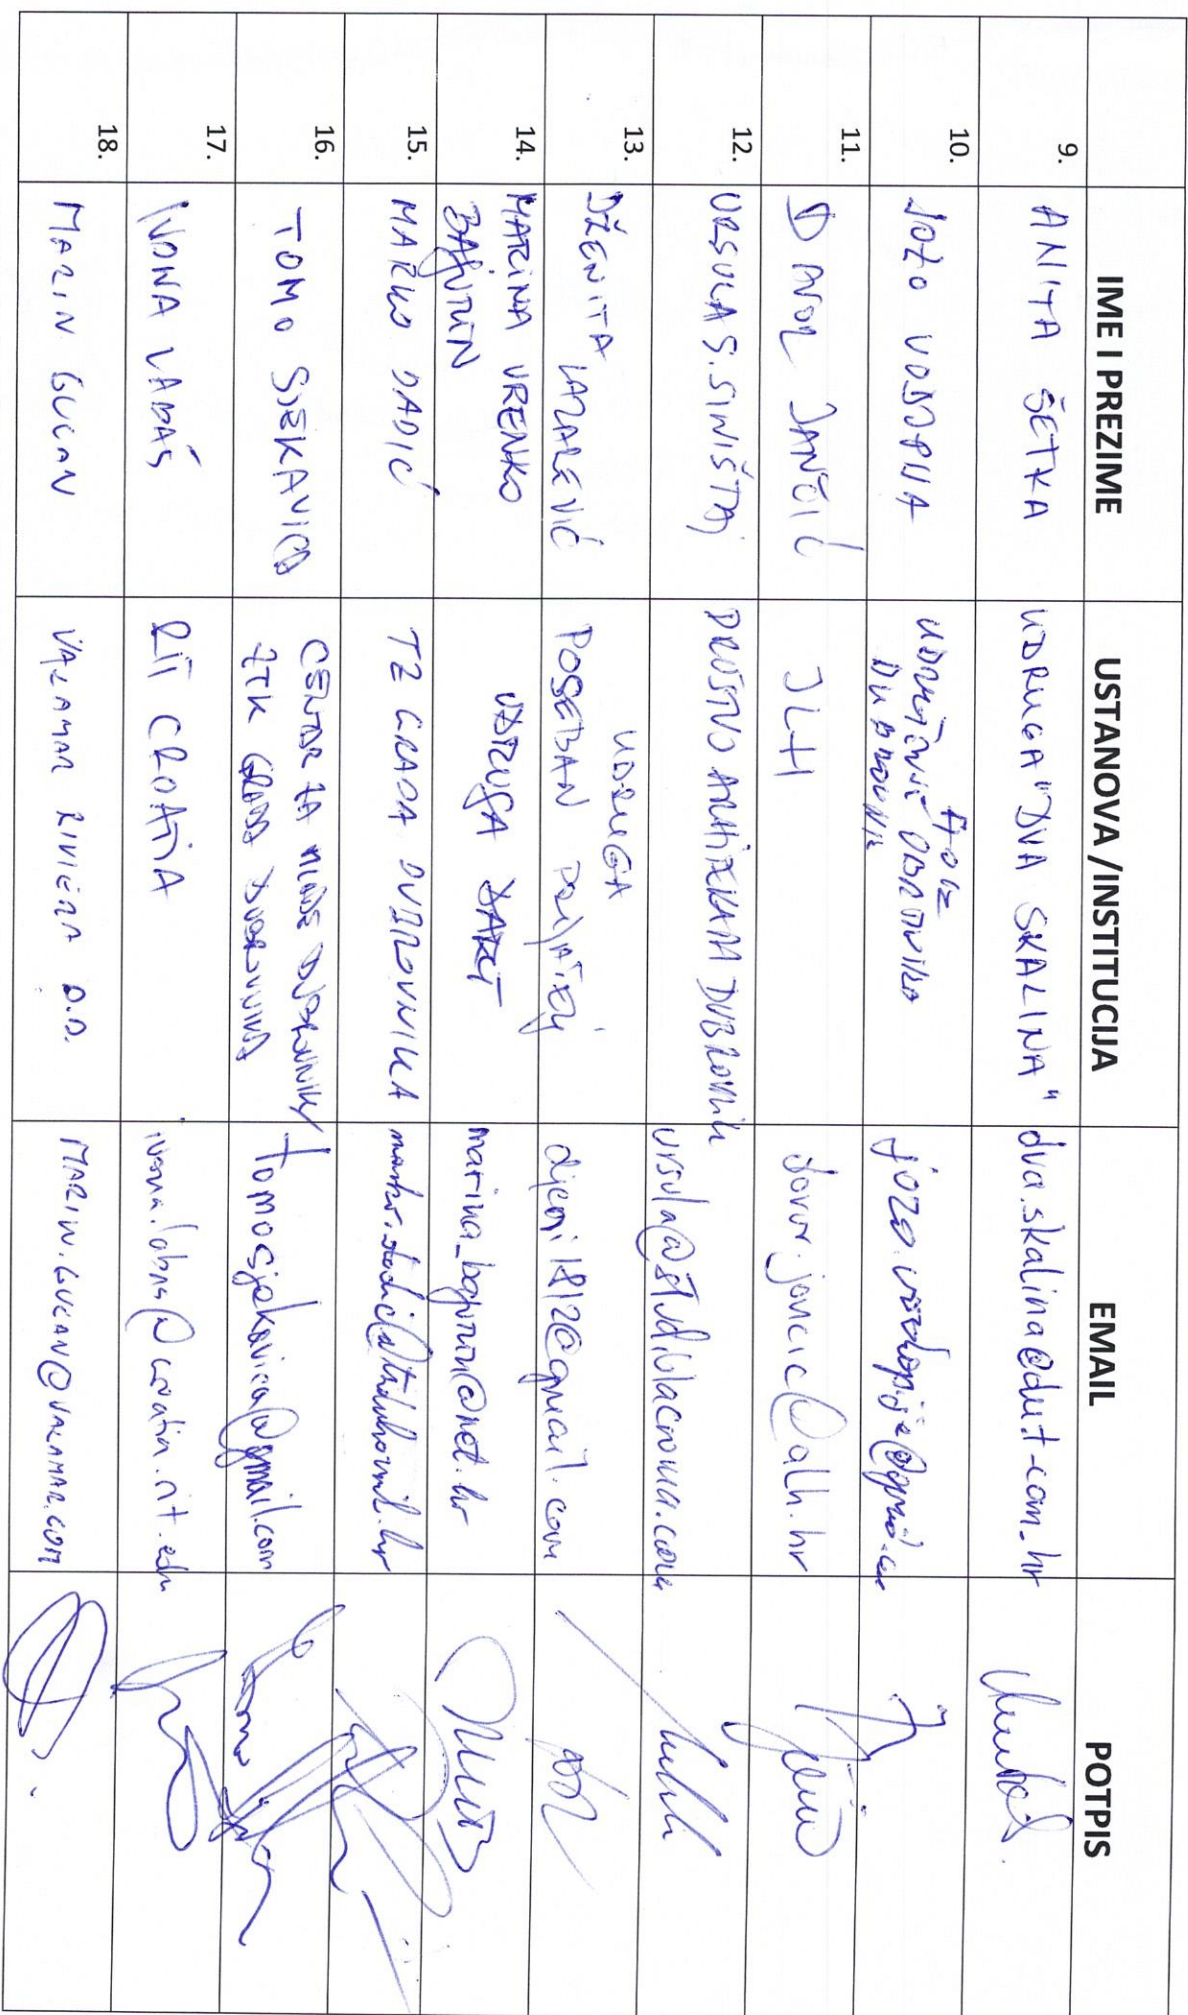 IME I PREZIME USTANOVA / INSTITUCIJA EMAIL POTPIS
9. ANITA ŠETKA UDRUGA "DVA SKALINA" dva.skalina@du.t-com.hr
10. JOZO VODOPIJA UDRUŽENJE OBRTNIKA
DUBROVNIK
11. DAVOR JANČIĆ JLH davor.jancic@alh.hr
12. URSULA S. SINIŠTAJ DRUŠTVO ARHITEKATA DUBROVNIK ursula@studiolacroma.com
13. DŽENITA LAZAREVIĆ UDRUGA
POSEBAN PRIJATELJ djeni1812@gmail.com
14. MARINA VRENKO
BAJURIN UDRUGA DART
15. MARKO DADIĆ TZ GRADA DUBROVNIKA
16. TOMO SJEKAVICA CENTAR ZA MLADE DUBROVNIK/
ZTK GRADA DUBROVNIKA tomosjekavica@gmail.com
17. IVONA LABAŠ RIT CROATIA ivona.labas@croatia.rit.edu
18. MARIN GUCAN VALAMAR RIVIERA D.D. MARIN.GUCAN@VALAMAR.COM